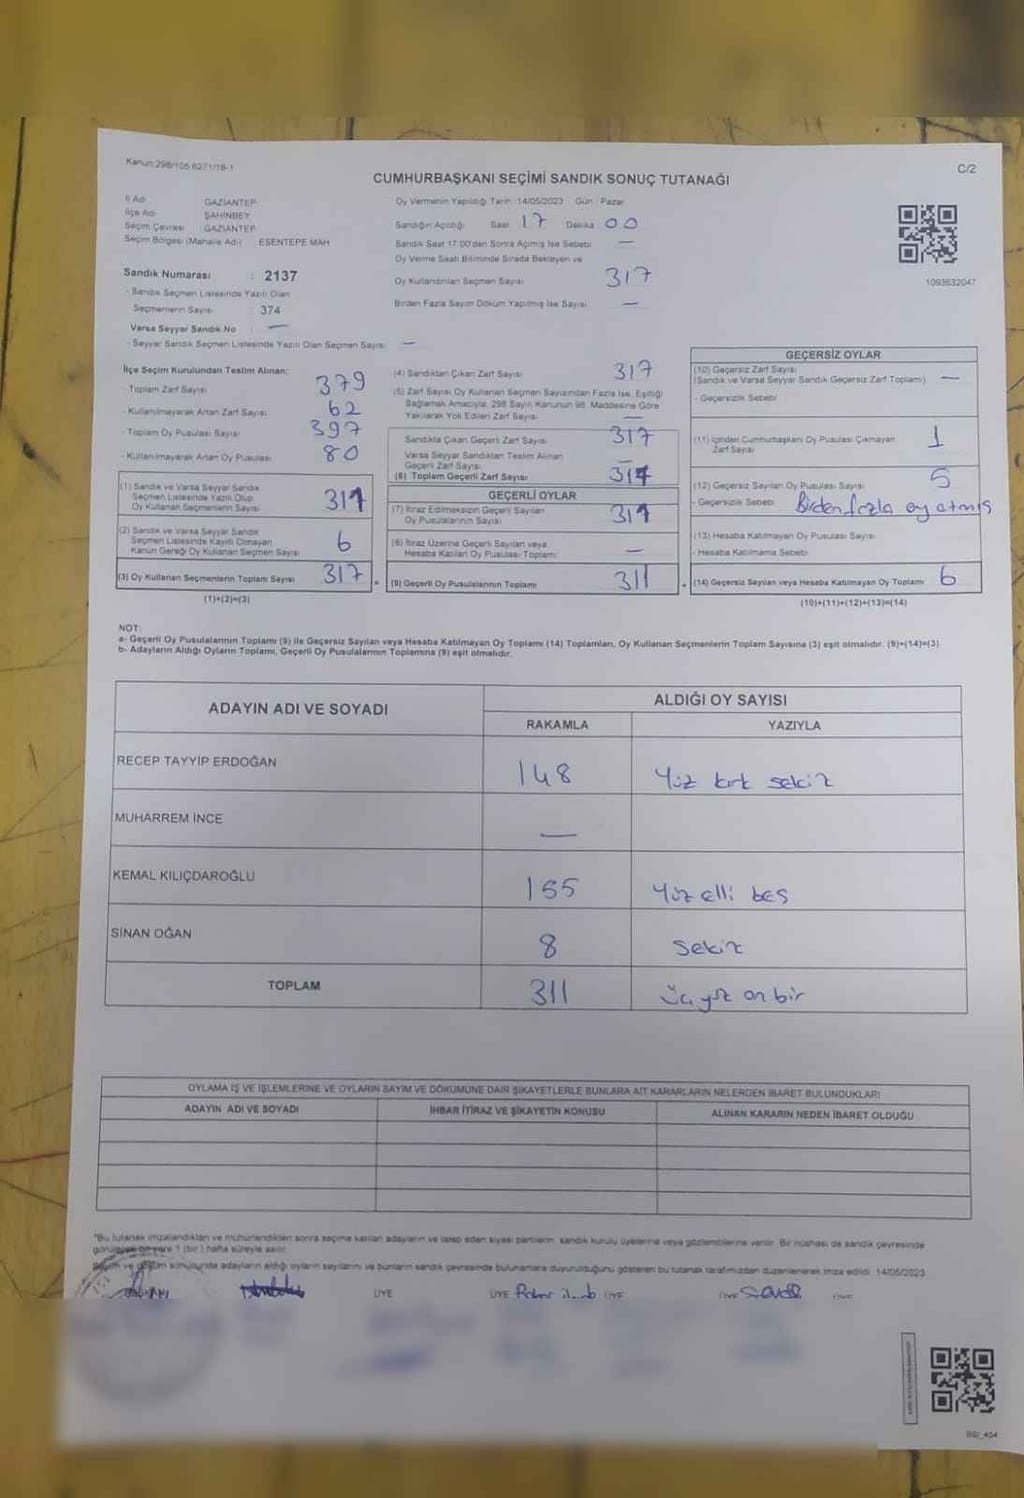 Kanun 298/105,6271/18-1
C/2
CUMHURBAŞKANI SEÇİMİ SANDIK SONUÇ TUTANAĞI
İl Adı GAZİANTEP
İlçe Adı ŞAHİNBEY
Seçim Çevresi GAZİANTEP
Seçim Bölgesi (Mahalle Adı) ESENTEPE MAH
Sandık Numarası : 2137
- Sandık Seçmen Listesinde Yazılı Olan
Seçmenlerin Sayısı : 374
Varsa Seyyar Sandık No : —
- Seyyar Sandık Seçmen Listesinde Yazılı Olan Seçmen Sayısı —
Oy Vermenin Yapıldığı Tarih 14/05/2023 Gün : Pazar
Sandığın Açıldığı Saat 17 Dakika 00
Sandık Saat 17.00'den Sonra Açılmış İse Sebebi —
Oy Verme Saati Bitiminde Sırada Bekleyen ve
Oy Kullandırılan Seçmen Sayısı 317
Birden Fazla Sayım Döküm Yapılmış İse Sayısı —
1093632047
İlçe Seçim Kurulundan Teslim Alınan:
- Toplam Zarf Sayısı 379
- Kullanılmayarak Artan Zarf Sayısı 62
- Toplam Oy Pusulası Sayısı 397
- Kullanılmayarak Artan Oy Pusulası 80
(1) Sandık ve Varsa Seyyar Sandık
Seçmen Listesinde Yazılı Olup
Oy Kullanan Seçmenlerin Sayısı 311
(2) Sandık ve Varsa Seyyar Sandık
Seçmen Listesinde Kayıtlı Olmayan
Kanun Gereği Oy Kullanan Seçmen Sayısı 6
(3) Oy Kullanan Seçmenlerin Toplam Sayısı 317
(1)+(2)=(3)
(4) Sandıktan Çıkan Zarf Sayısı 317
(5) Zarf Sayısı Oy Kullanan Seçmen Sayısından Fazla İse, Eşitliği
Sağlamak Amacıyla, 298 Sayılı Kanunun 98. Maddesine Göre
Yakılarak Yok Edilen Zarf Sayısı —
Sandıkta Çıkan Geçerli Zarf Sayısı 317
Varsa Seyyar Sandıktan Teslim Alınan
Geçerli Zarf Sayısı —
(6) Toplam Geçerli Zarf Sayısı 317
GEÇERLİ OYLAR
(7) İtiraz Edilmeksizin Geçerli Sayılan
Oy Pusulalarının Sayısı 311
(8) İtiraz Üzerine Geçerli Sayılan veya
Hesaba Katılan Oy Pusulası Toplamı —
= (9) Geçerli Oy Pusulalarının Toplamı 311
GEÇERSİZ OYLAR
(10) Geçersiz Zarf Sayısı
(Sandık ve Varsa Seyyar Sandık Geçersiz Zarf Toplamı) —
- Geçersizlik Sebebi
(11) İçinden Cumhurbaşkanı Oy Pusulası Çıkmayan
Zarf Sayısı 1
(12) Geçersiz Sayılan Oy Pusulası Sayısı 5
- Geçersizlik Sebebi Birden fazla oy atmış
(13) Hesaba Katılmayan Oy Pusulası Sayısı
- Hesaba Katılmama Sebebi
+ (14) Geçersiz Sayılan veya Hesaba Katılmayan Oy Toplamı 6
(10)+(11)+(12)+(13)=(14)
NOT:
a- Geçerli Oy Pusulalarının Toplamı (9) ile Geçersiz Sayılan veya Hesaba Katılmayan Oy Toplamı (14) Toplamları, Oy Kullanan Seçmenlerin Toplam Sayısına (3) eşit olmalıdır. (9)+(14)=(3)
b- Adayların Aldığı Oyların Toplamı, Geçerli Oy Pusulalarının Toplamına (9) eşit olmalıdır.
ADAYIN ADI VE SOYADI
ALDIĞI OY SAYISI
RAKAMLA YAZIYLA
RECEP TAYYİP ERDOĞAN 148 Yüz kırk sekiz
MUHARREM İNCE —
KEMAL KILIÇDAROĞLU 155 Yüz elli beş
SİNAN OĞAN 8 Sekiz
TOPLAM 311 Üç yüz on bir
OYLAMA İŞ VE İŞLEMLERİNE VE OYLARIN SAYIM VE DÖKÜMÜNE DAİR ŞİKAYETLERLE BUNLARA AİT KARARLARIN NELERDEN İBARET BULUNDUKLARI
ADAYIN ADI VE SOYADI İHBAR İTİRAZ VE ŞİKAYETİN KONUSU ALINAN KARARIN NEDEN İBARET OLDUĞU
"Bu tutanak imzalandıktan ve mühürlendikten sonra seçime katılan adayların ve talep eden siyasi partilerin sandık kurulu üyelerine veya gözlemcilerine verilir. Bir nüshası da sandık çevresinde
görülebilir bir yere 1 (bir) hafta süreyle asılır.
Seçim ve döküm sonucunda adayların aldığı oyların sayılarını ve bunların sandık çevresinde bulunanlara duyurulduğunu gösteren bu tutanak tarafımızdan düzenlenerek imza edildi. 14/05/2023
BAŞKAN ÜYE ÜYE ÜYE ÜYE ÜYE